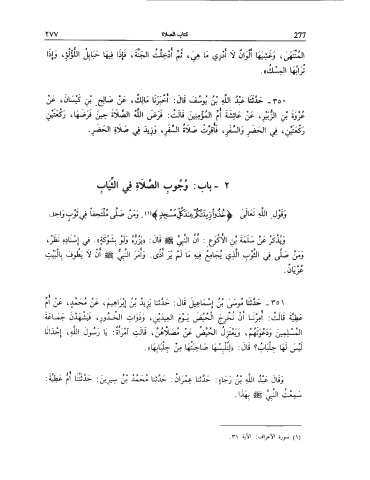 277 كتاب الصلاة ٢٧٧
المُنْتَهَى، وَغَشِيَهَا أَلْوَانٌ لَا أَدْرِي مَا هِيَ، ثُمَّ أُدْخِلْتُ الجَنَّةَ، فَإِذَا فِيهَا حَبَايِلُ اللُّؤْلُؤِ، وَإِذَا
تُرَابُهَا المِسْكُ».
٣٥٠ - حَدَّثَنَا عَبْدُ اللَّهِ بْنُ يُوسُفَ قَالَ: أَخْبَرَنَا مَالِكٌ، عَنْ صَالِحِ بْنِ كَيْسَانَ، عَنْ
عُرْوَةَ بْنِ الزُّبَيْرِ، عَنْ عَائِشَةَ أُمِّ المُؤْمِنِينَ قَالَتْ: فَرَضَ اللَّهُ الصَّلَاةَ حِينَ فَرَضَهَا، رَكْعَتَيْنِ
رَكْعَتَيْنِ، فِي الحَضَرِ وَالسَّفَرِ، فَأُقِرَّتْ صَلَاةُ السَّفَرِ، وَزِيدَ فِي صَلَاةِ الحَضَرِ.
٢ - باب: وُجُوبِ الصَّلَاةِ فِي الثِّيَابِ
وَقَوْلِ اللَّهِ تَعَالَى ﴿خُذُوا زِينَتَكُمْ عِنْدَ كُلِّ مَسْجِدٍ﴾(١). وَمَنْ صَلَّى مُلْتَحِفاً فِي ثَوْبٍ وَاحِدٍ.
وَيُذْكَرُ عَنْ سَلَمَةَ بْنِ الأَكْوَعِ: أَنَّ النَّبِيَّ ﷺ قَالَ: «يَزُرُّهُ وَلَوْ بِشَوْكَةٍ». فِي إِسْنَادِهِ نَظَرٌ،
وَمَنْ صَلَّى فِي الثَّوْبِ الَّذِي يُجَامِعُ فِيهِ مَا لَمْ يَرَ أَذًى. وَأَمَرَ النَّبِيُّ ﷺ أَنْ لَا يَطُوفَ بِالْبَيْتِ
عُرْيَانٌ.
٣٥١ - حَدَّثَنَا مُوسَى بْنُ إِسْمَاعِيلَ قَالَ: حَدَّثَنَا يَزِيدُ بْنُ إِبْرَاهِيمَ، عَنْ مُحَمَّدٍ، عَنْ أُمِّ
عَطِيَّةَ قَالَتْ: أُمِرْنَا أَنْ نُخْرِجَ الْحُيَّضَ يَوْمَ العِيدَيْنِ، وَذَوَاتِ الخُدُورِ، فَيَشْهَدْنَ جَمَاعَةَ
المُسْلِمِينَ وَدَعْوَتَهُمْ، وَيَعْتَزِلُ الحُيَّضُ عَنْ مُصَلَّاهُنَّ، قَالَتِ امْرَأَةٌ: يَا رَسُولَ اللَّهِ، إِحْدَانَا
لَيْسَ لَهَا جِلْبَابٌ؟ قَالَ: «لِتُلْبِسْهَا صَاحِبَتُهَا مِنْ جِلْبَابِهَا».
وَقَالَ عَبْدُ اللَّهِ بْنُ رَجَاءٍ: حَدَّثَنَا عِمْرَانُ: حَدَّثَنَا مُحَمَّدُ بْنُ سِيرِينَ: حَدَّثَتْنَا أُمُّ عَطِيَّةَ:
سَمِعْتُ النَّبِيَّ ﷺ بِهَذَا.
(١) سورة الأعراف: الآية ٣١.